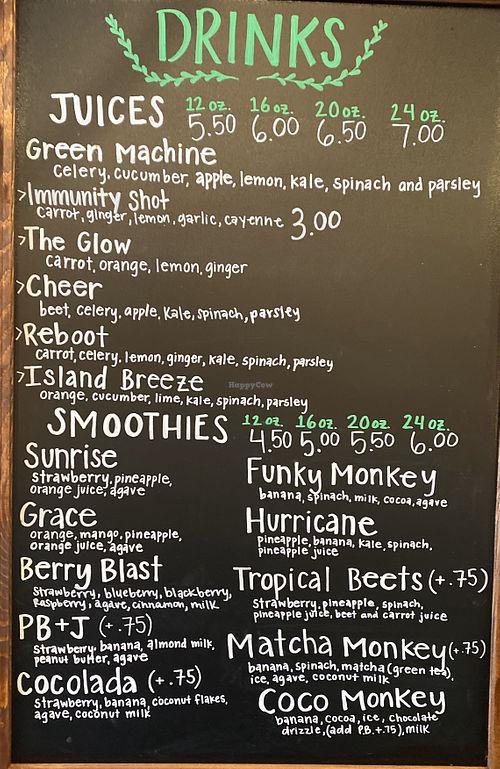 DRINKS
JUICES 12 oz. 16 oz. 20 oz. 24 oz.
5.50 6.00 6.50 7.00
Green Machine
celery, cucumber, apple, lemon, kale, spinach and parsley
>Immunity Shot
carrot, ginger, lemon, garlic, cayenne 3.00
>The Glow
carrot, orange, lemon, ginger
>Cheer
beet, celery, apple, kale, spinach, parsley
>Reboot
carrot, celery, lemon, ginger, kale, spinach, parsley
>Island Breeze
orange, cucumber, lime, kale, spinach, parsley
HappyCow
SMOOTHIES 12 oz. 16 oz. 20 oz. 24 oz.
4.50 5.00 5.50 6.00
Sunrise
strawberry, pineapple,
orange juice, agave
Grace
orange, mango, pineapple,
orange juice, agave
Berry Blast
strawberry, blueberry, blackberry,
raspberry, agave, cinnamon, milk
PB+J (+.75)
strawberry, banana, almond milk,
peanut butter, agave
Cocolada (+.75)
strawberry, banana, coconut flakes,
agave, coconut milk
Funky Monkey
banana, spinach, milk, cocoa, agave
Hurricane
pineapple, banana, kale, spinach,
pineapple juice
Tropical Beets (+.75)
strawberry, pineapple, spinach,
pineapple juice, beet and carrot juice
Matcha Monkey (+.75)
banana, spinach, matcha (green tea),
ice, agave, coconut milk
Coco Monkey
banana, cocoa, ice, chocolate
drizzle, (add P.B. +.75), milk